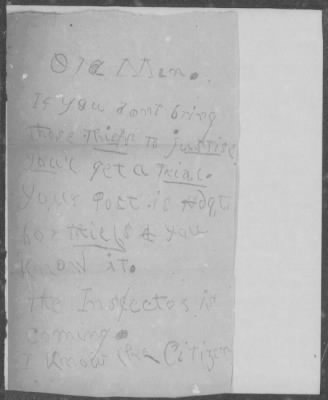 Old Man.
If you dont bring
those thiefs to justise
you'll get a Trial.
Your Post is Hdqt.
for thiefs & you
know it.
the Inspector is
coming.
I know the Citizen